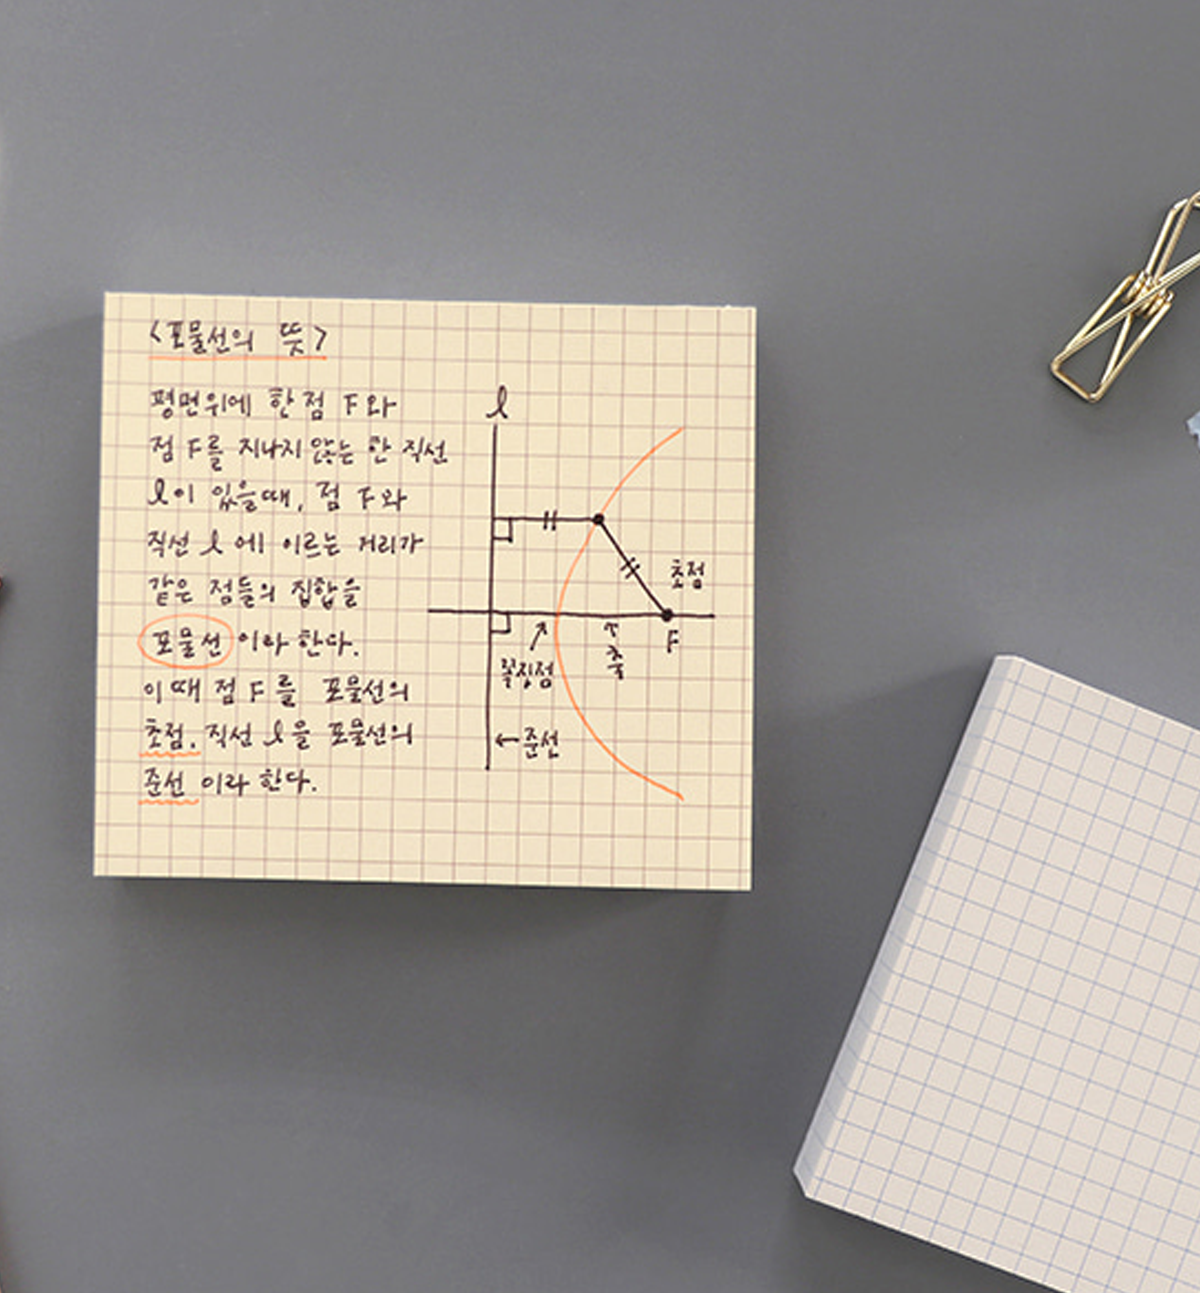 <포물선의 뜻>
평면위에 한 점 F와
점 F를 지나지 않는 한 직선
l이 있을때, 점 F와
직선 l에 이르는 거리가
같은 점들의 집합을
포물선이라 한다.
이때 점 F를 포물선의
초점, 직선 l을 포물선의
준선이라 한다.
l
초점
F
축
꼭짓점
←준선